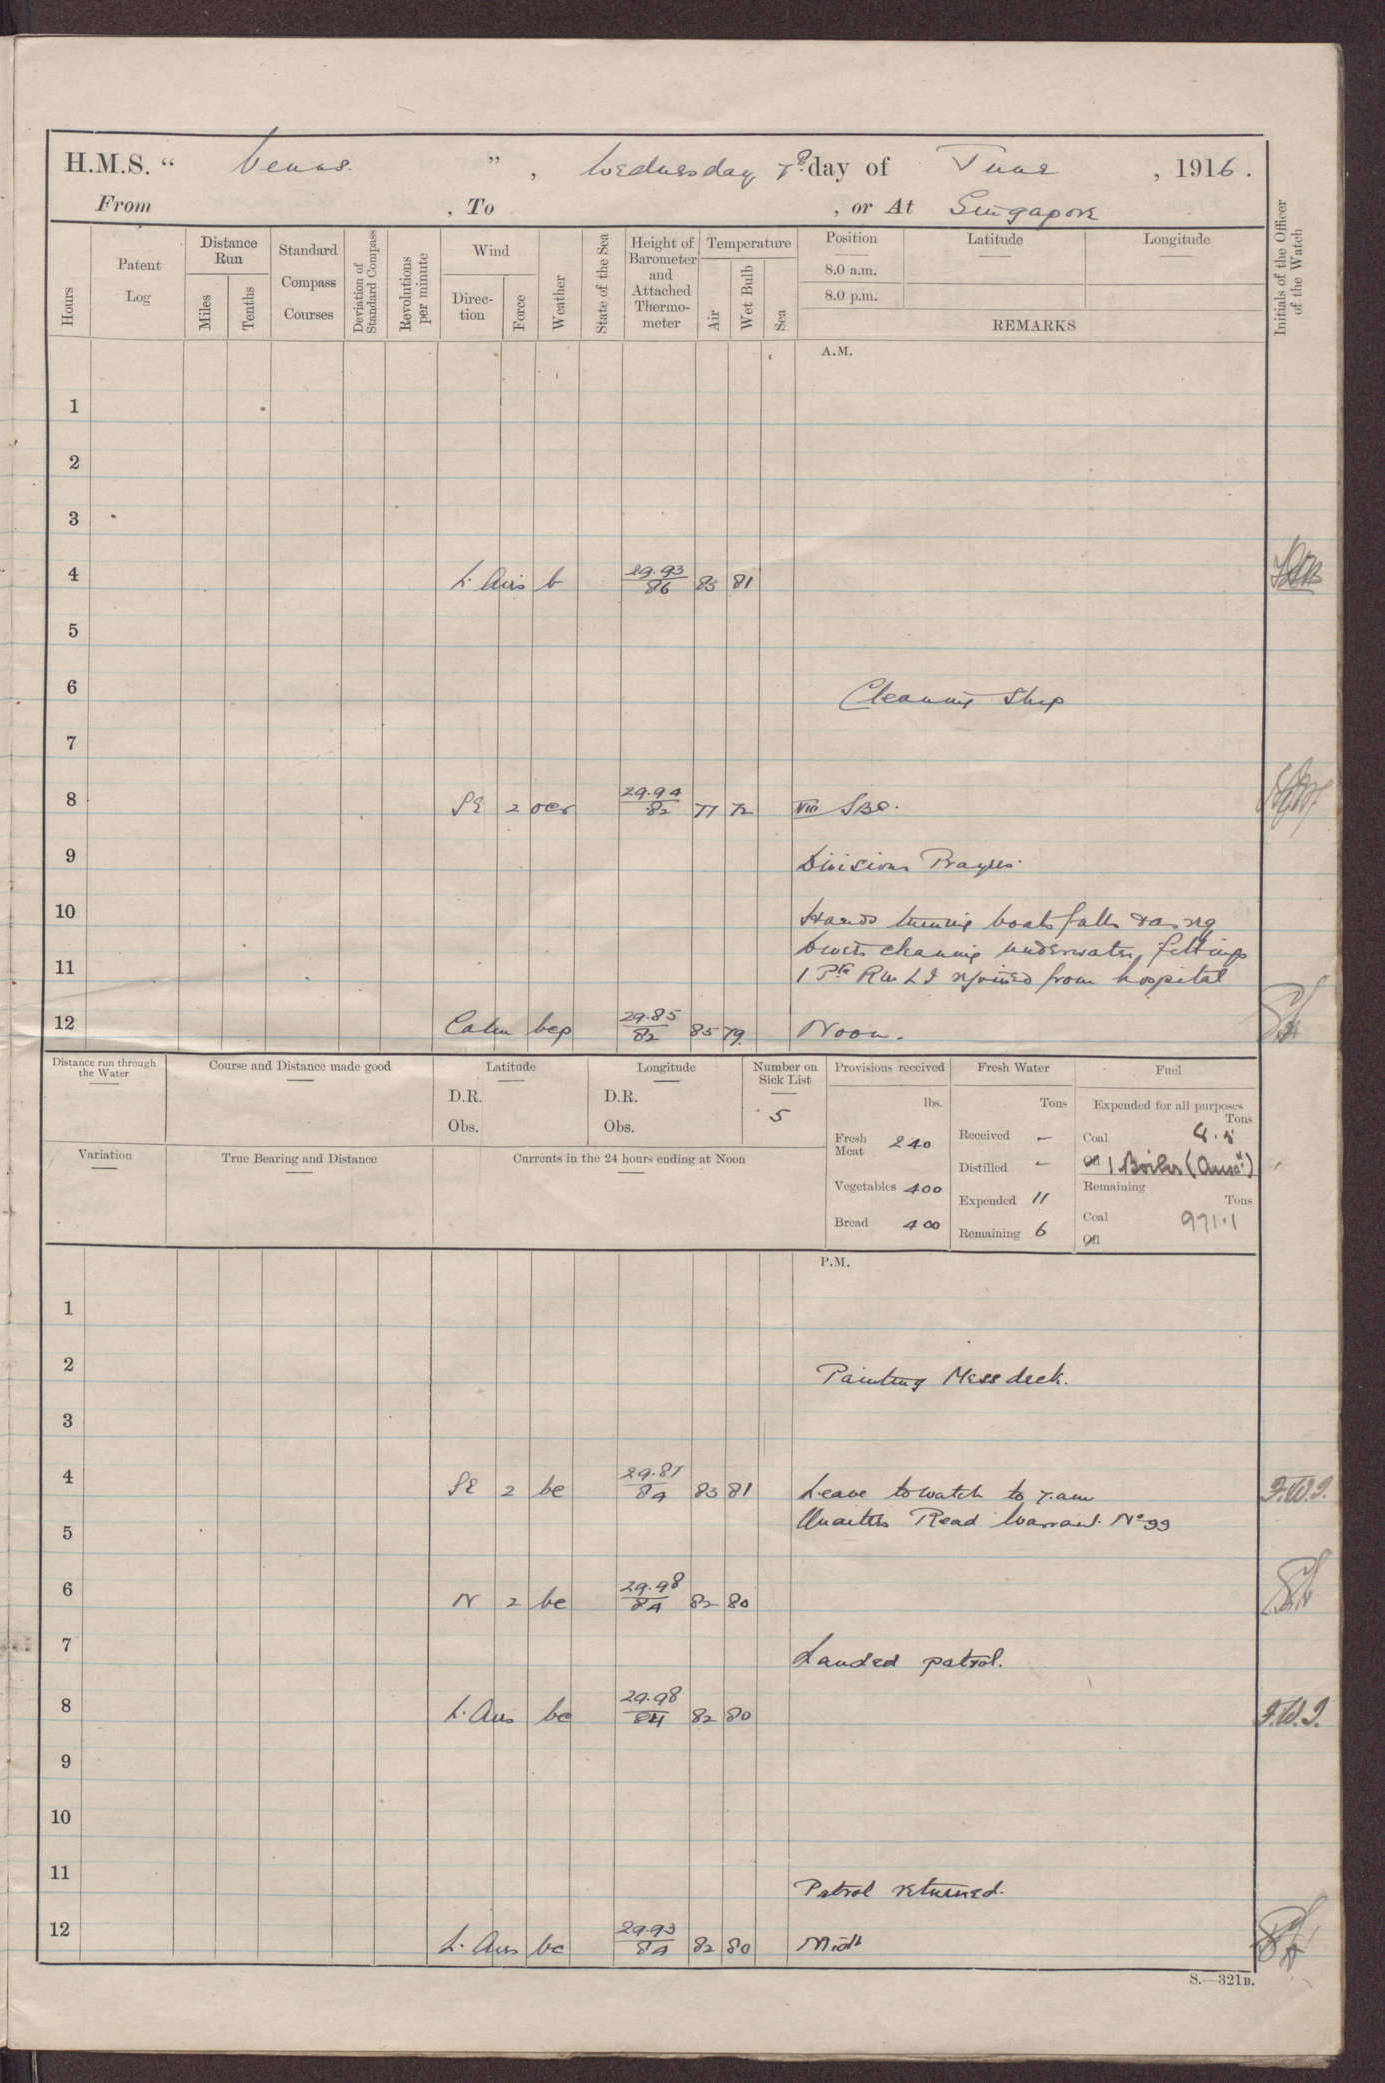 H.M.S. “ Venus ” , Wednesday 7th day of June , 1916.
From , To , or At Singapore
Hours
Patent Log
Distance Run
Miles
Tenths
Standard Compass Courses
Deviation of Standard Compass
Revolutions per minute
Wind
Direction
Force
Weather
State of the Sea
Height of Barometer and Attached Thermometer
Temperature
Air
Wet Bulb
Sea
Position
8.0 a.m.
8.0 p.m.
Latitude
Longitude
REMARKS
Initials of the Officer of the Watch
A.M.
1
2
3
4 L. Airs b 29.93 86 85 81
5
6 Cleaning Ship
7
8 SE 2 ocr 29.94 82 77 72 VIII SBO.
9 Divisions Prayers.
10 Hands turning boats falls
cleaning underwater fittings
11 1 Pte RMLI rejoined from hospital
12 Calm bcp 29.85 82 85 79 Noon.
Distance run through the Water
Course and Distance made good
Latitude
D.R.
Obs.
Longitude
D.R.
Obs.
Number on Sick List
5
Provisions received
lbs.
Fresh Meat 240
Vegetables 400
Bread 400
Fresh Water
Tons
Received –
Distilled –
Expended 11
Remaining 6
Fuel
Expended for all purposes
Tons
Coal 4.5
Oil 1 Boiler (Auxy)
Remaining
Tons
Coal 971.1
Oil
Variation
True Bearing and Distance
Currents in the 24 hours ending at Noon
P.M.
1
2 Painting Mess deck.
3
4 SE 2 bc 29.87 84 83 81 Leave to watch to 7.am F.W.J.
Quarters Read Warrant No 99
5
6 N 2 bc 29.98 84 82 80
7 Landed patrol.
8 L. Airs bc 29.98 84 82 80 F.W.J.
9
10
11 Patrol returned.
12 L. Airs bc 29.93 84 82 80 Midt
S.—321B.